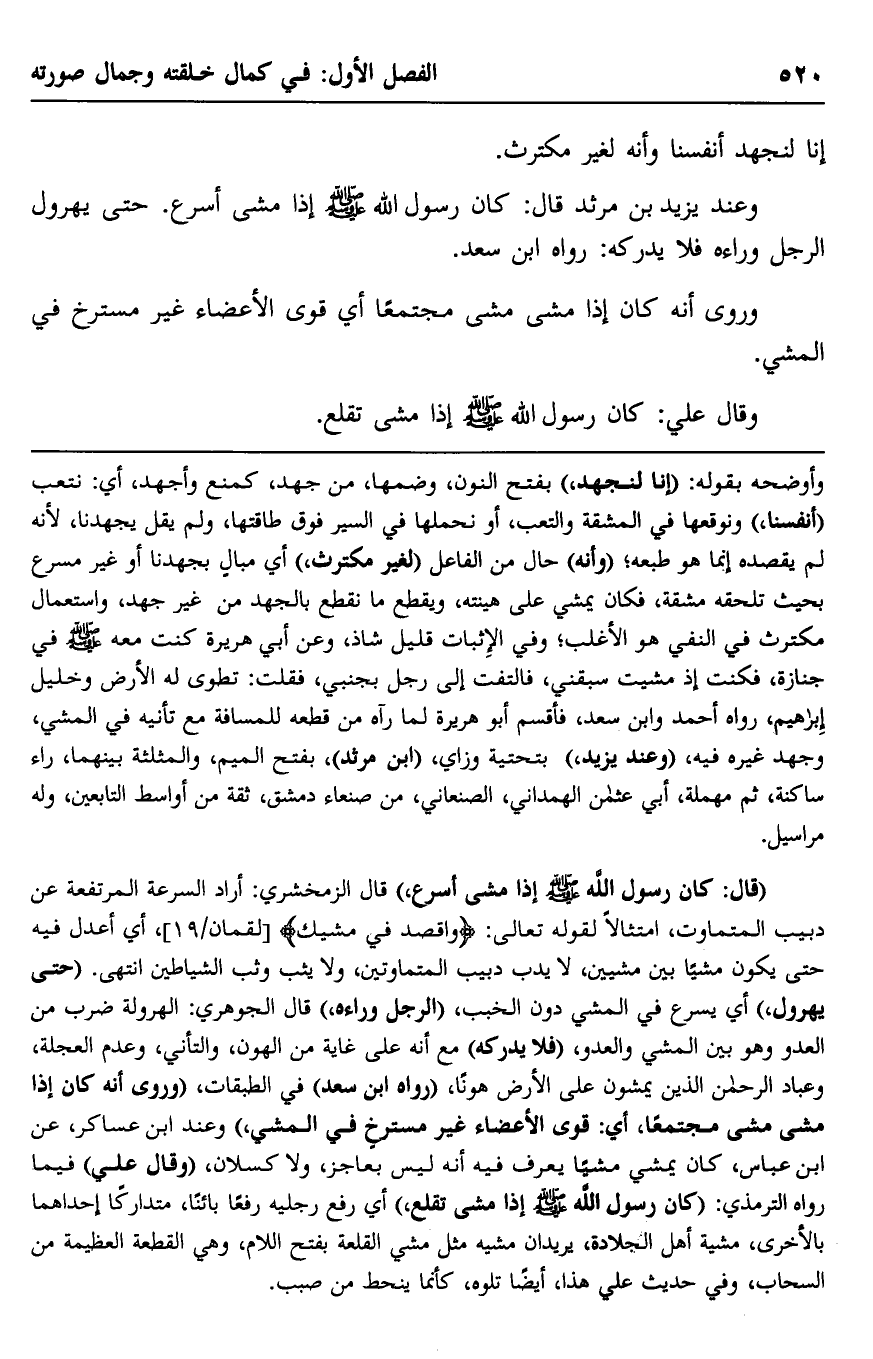 ٥٢٠ الفصل الأول: في كمال خلقته وجمال صورته
إنا لنجهد أنفسنا وأنه لغير مكترث.
وعند يزيد بن مرثد قال: كان رسول الله ﷺ إذا مشى أسرع. حتى يهرول
الرجل وراءه فلا يدركه: رواه ابن سعد.
وروى أنه كان إذا مشى مشى مجتمعًا أي قوى الأعضاء غير مسترخ في
المشي.
وقال علي: كان رسول الله ﷺ إذا مشى تقلع.
وأوضحه بقوله: (إنا لنجهد،) بفتح النون، وضمها، من جهد، كمنع وأجهد، أي: نتعب
(أنفسنا،) ونوقعها في المشقة والتعب، أو نحملها في السير فوق طاقتها، ولم يقل يجهدنا، لأنه
لم يقصده إنما هو طبعه؛ (وأنه) حال من الفاعل (لغير مكترث،) أي مبالٍ بجهدنا أو غير مسرع
بحيث تلحقه مشقة، فكان يمشي على هينته، ويقطع ما نقطع بالجهد من غير جهد، واستعمال
مكترث في النفي هو الأغلب؛ وفي الإثبات قليل شاذ، وعن أبي هريرة كنت معه ﷺ في
جنازة، فكنت إذ مشيت سبقني، فالتفت إلى رجل بجنبي، فقلت: تطوى له الأرض وخليل
إبرٰهيم، رواه أحمد وابن سعد، فأقسم أبو هريرة لما رآه من قطعه للمسافة مع تأنيه في المشي،
وجهد غيره فيه، (وعند يزيد،) بتحتية وزاي، (ابن مرثد)، بفتح الميم، والمثلثة بينهما، راء
ساكنة، ثم مهملة، أبي عثمٰن الهمداني، الصنعاني، من صنعاء دمشق، ثقة من أواسط التابعين، وله
مراسيل.
(قال: كان رسول اللَّه ﷺ إذا مشى أسرع،) قال الزمخشري: أراد السرعة المرتفعة عن
دبيب المتماوت، امتثالاً لقوله تعالى: ﴿واقصد في مشيك﴾ [لقمان/١٩]، أي أعدل فيه
حتى يكون مشيًا بين مشيين، لا يدب دبيب المتماوتين، ولا يثب وثب الشياطين انتهى. (حتى
يهرول،) أي يسرع في المشي دون الخبب، (الرجل وراءه،) قال الجوهري: الهرولة ضرب من
العدو وهو بين المشي والعدو، (فلا يدركه) مع أنه على غاية من الهون، والتأني، وعدم العجلة،
وعباد الرحمٰن الذين يمشون على الأرض هونًا، (رواه ابن سعد) في الطبقات، (وروى أنه كان إذا
مشى مشى مجتمعًا، أي: قوى الأعضاء غير مسترخٍ في المشي،) وعند ابن عساكر، عن
ابن عباس، كان يمشي مشيًا يعرف فيه أنه ليس بعاجز، ولا كسلان، (وقال علي) فيما
رواه الترمذي: (كان رسول اللَّه ﷺ إذا مشى تقلع،) أي رفع رجليه رفعًا بائنًا، متداركًا إحداهما
بالأخرى، مشية أهل الجلادة، يريدان مشيه مثل مشي القلعة بفتح اللام، وهي القطعة العظيمة من
السحاب، وفي حديث علي هذا، أيضًا تلوه، كأنما ينحط من صبب.